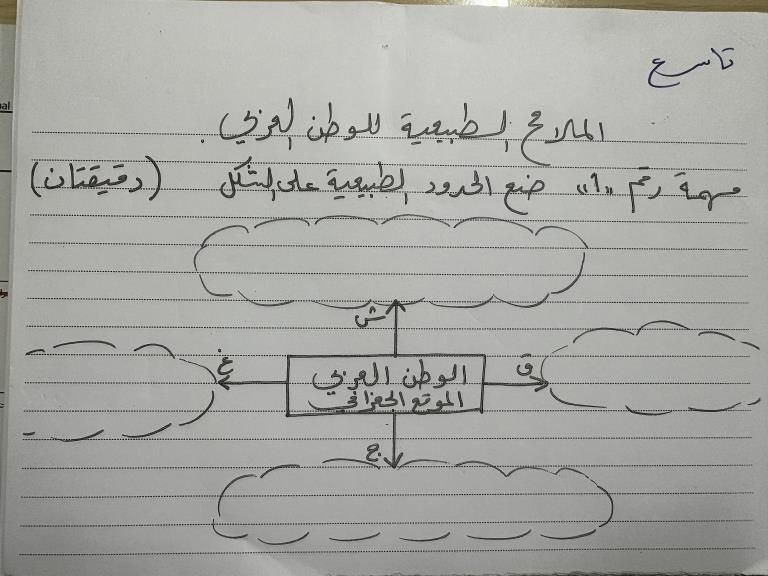 تاسع
الملامح الطبيعية للوطن العربي .
مهمة رقم "1" ضع الحدود الطبيعية على الشكل (دقيقتان)
ش
غ
الوطن العربي
الموقع الجغرافي
ق
ج